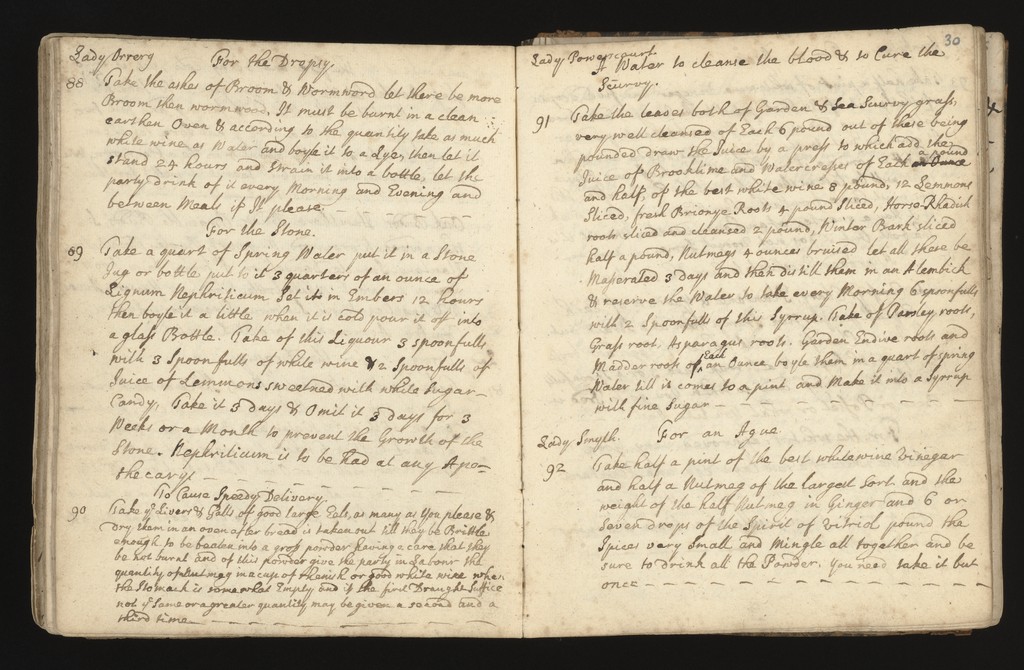 Lady Orrery For the Dropsy.
88 Take the ashes of Broom & Wormword let there be more
Broom then wormwood, It must be burnt in a clean
earthen Oven & according to the quantity take as much
white wine as Water and boyle it to a Lye, then let it
stand 24 hours and strain it into a bottle, let the
party drink of it every Morning and Evening and
between Meals if It please.
For the Stone.
89 Take a quart of Spring Water put it in a Stone
Jug or bottle put to it 3 quarters of an ounce of
Lignum Nephriticum Set it in Embers 12 hours
then boyle it a little when it is cold pour it off into
a glass Bottle. Take of this Liquour 3 spoonfulls
with 3 Spoonfulls of white wine & 2 Spoonfulls of
Juice of Lemmons sweetned with white Sugar
Candy, Take it 3 days & Omit it 3 days for 3
Weeks or a Month to prevent the Growth of the
Stone. Nephriticum is to be had at any Apo-
thecarys
To Cause Speedy Delivery.
90 Take ye Livers & Galls of good large Eels, as many as You please &
Dry them in an oven after bread is taken out till they be Brittle
enough to be beaten into a gross powder having a care that they
be not burnt and of this powder give the party in Labour the
quantity of a in a cup of Rhenish or good white wine when
the Stomack is somewhat Empty and if the first Draught Suffice
not ye Same or a greater quantity may be given a second and a
third time
30
Lady Powerscourt A Water to cleanse the blood & to Cure the
Scurvy.
91 Take the leaves both of Garden & Sea Scurvy grass,
very well cleansed of Each 6 pound out of these being
pounded draw the Juice by a press to which add the
Juice of Brooklime and Watercresses of Each a pound
and half, of the best white wine 8 pound, 12 Lemmons
Sliced, fresh Brionye Roots 4 pound Sliced, Horse-Rhadish
roots sliced and cleansed 2 pound, Winter Bark sliced
half a pound, Nutmegs 4 ounces bruised let all these be
Maserated 3 days and then distill them in an Alembick
& reserve the Water to take every Morning 6 spoonfulls
with 2 Spoonfulls of this Syrrup. Take of Parsley roots,
Grass root. Asparagus roots. Garden Endive roots and
Madder roots of Each an Ounce, boyle them in a quart of spring
Water till it comes to a pint and Make it into a Syrrup
with fine Sugar
Lady Smyth. For an Ague
92 Take half a pint of the best whitewine Vinegar
and half a Nutmeg of the largest sort and the
weight of the half Nutmeg in Ginger and 6 or
Seven drops of the Spirit of Vitriol pound the
Spices very Small and Mingle all together and be
sure to Drink all the Powder. You need take it but
once